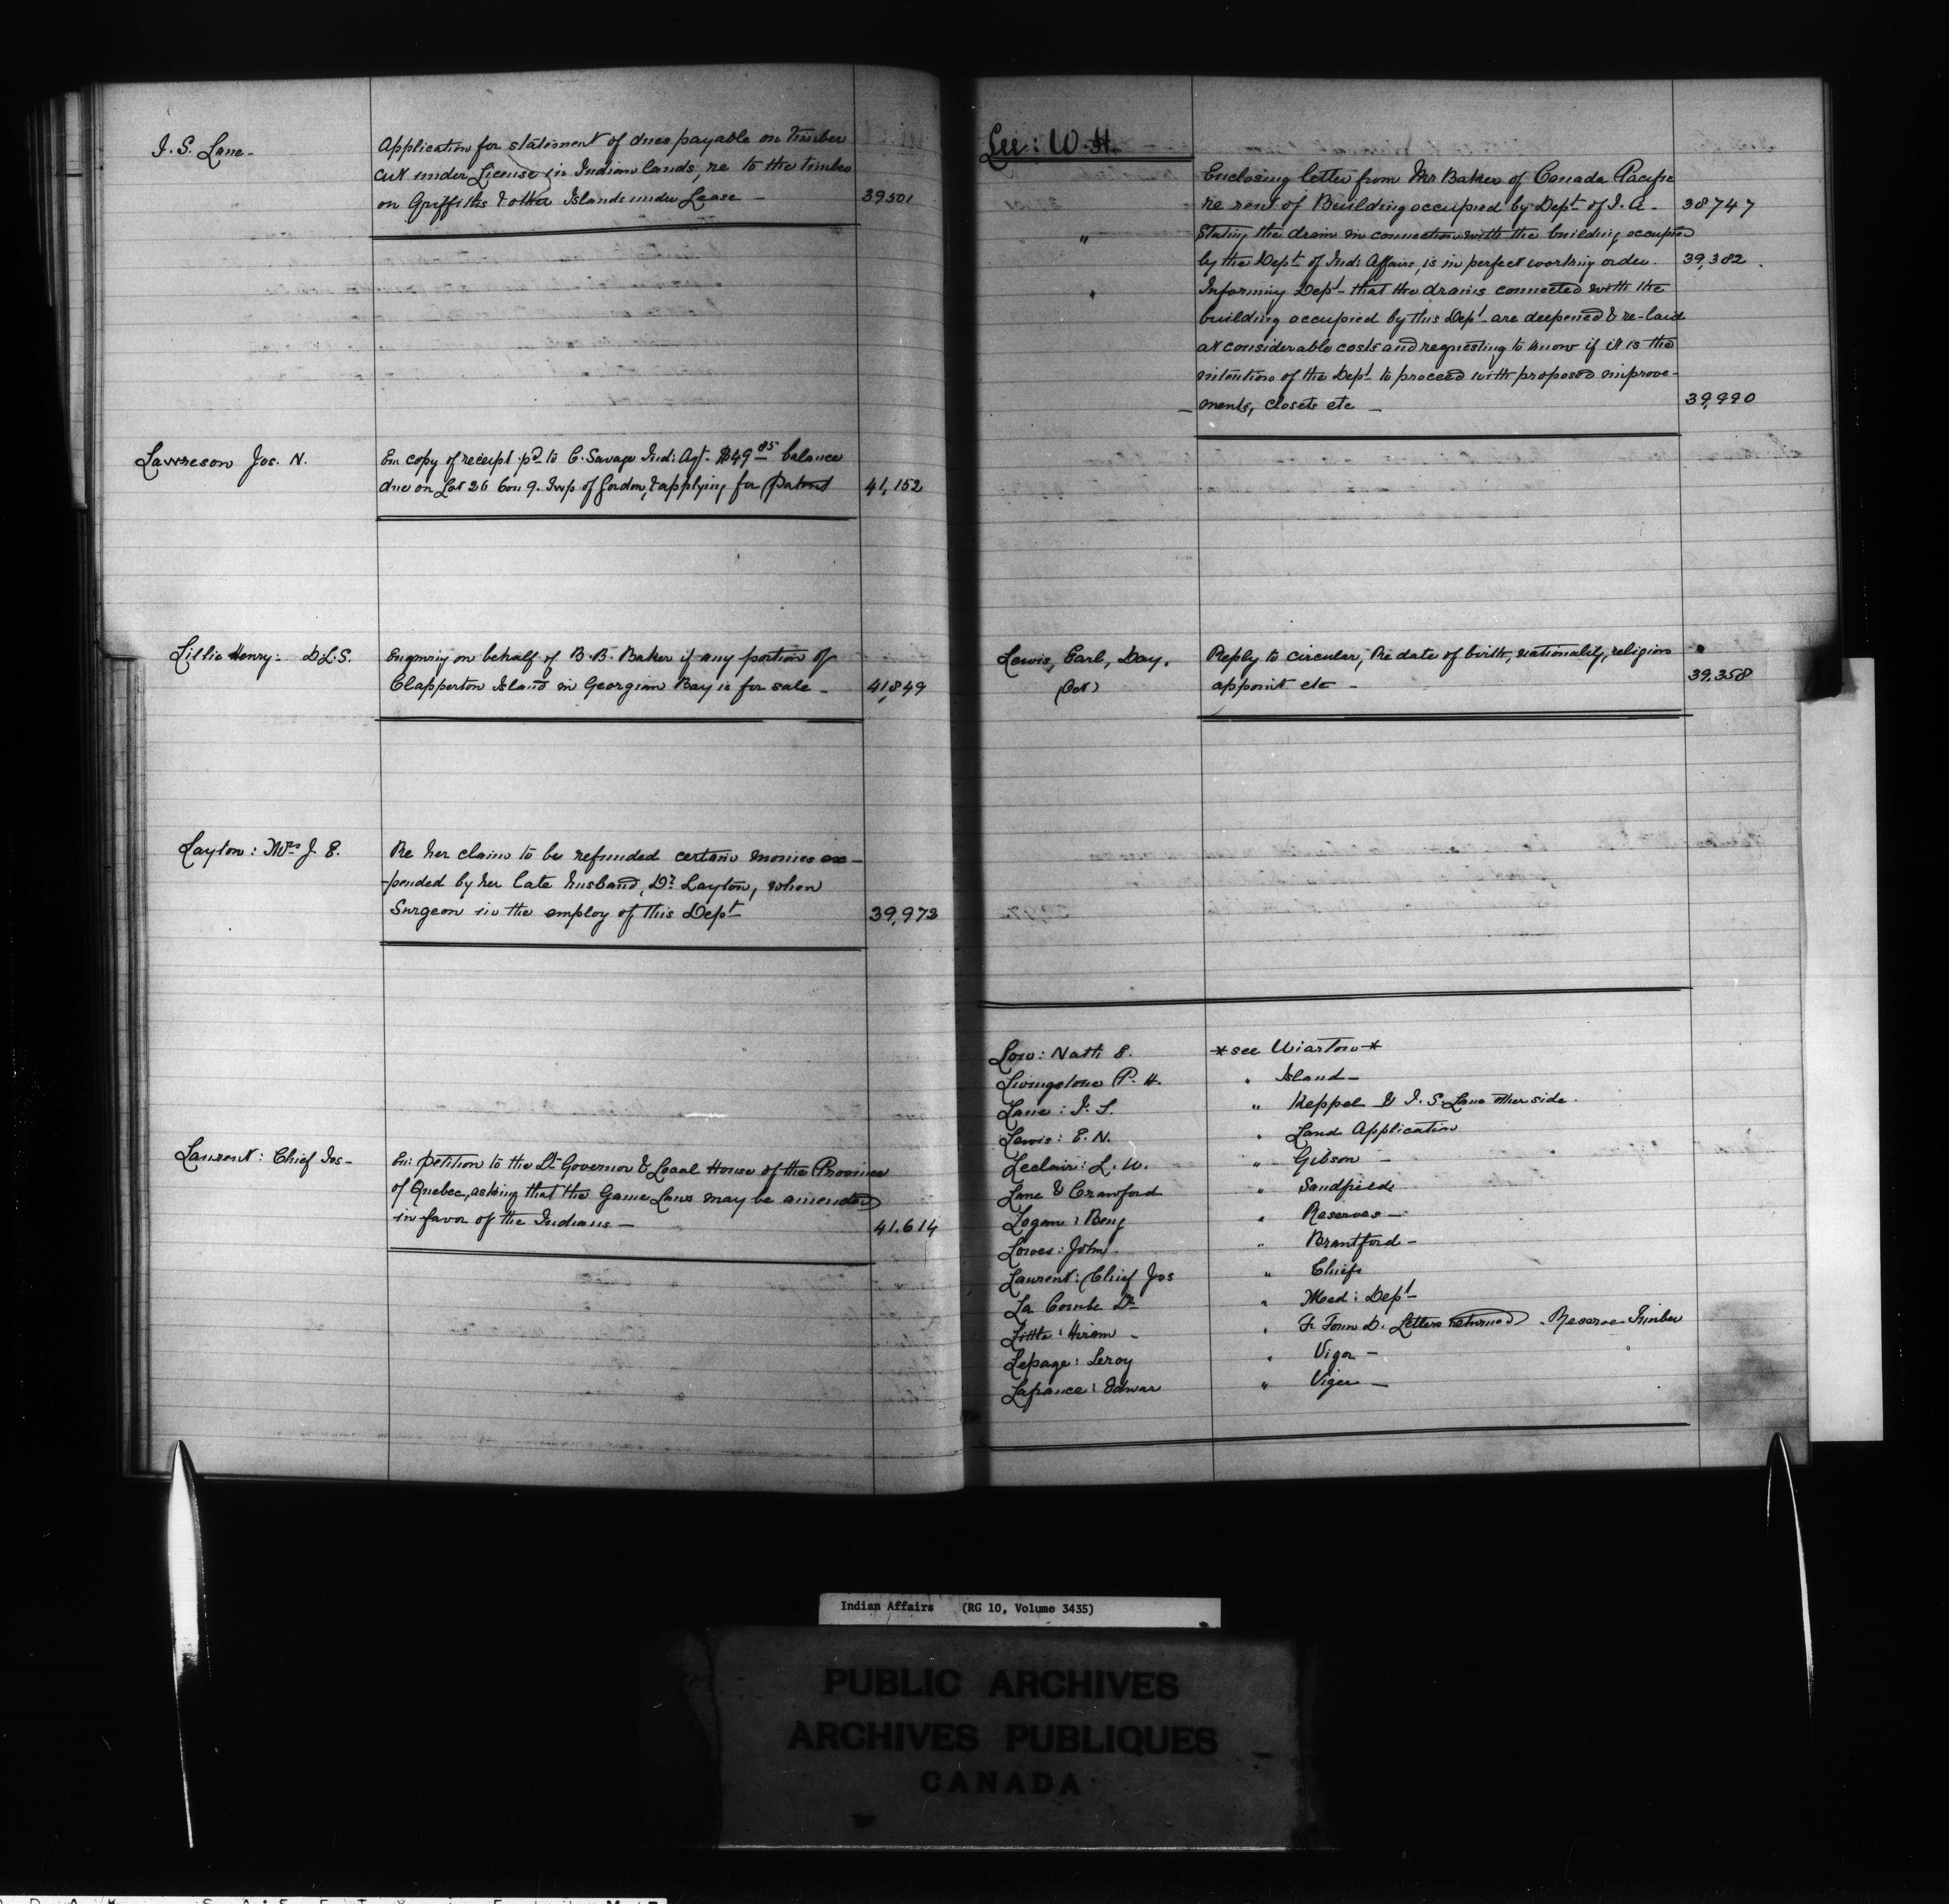 J. S. Lane -
Application for statement of dues payable on timber
cut under License in Indian lands, re to the timber
on Griffiths & other Islands under Lease - 39501
Lawreson Jos. N.
En: copy of receipt pd to C. Savage Ind: Agt. $49 85 balance
due on Lot 26 Con 9. Twp of Gordon, & applying for Patent 41,152
Lillie Henry: D.L.S.
Enquiry on behalf of B. B. Baker if any portion of
Clapperton Island in Georgian Bay is for sale - 41,849
Layton: Mrs J. E.
Re her claim to be refunded certain monies ex-
-pended by her late husband, Dr Layton, when
Surgeon in the employ of this Dept 39,973
Laurent: Chief Jos-
En: petition to the Lt Governor & Local House of the Province
of Quebec, asking that the Game Laws may be amended
in favor of the Indians - 41,614
Lee: W. H.
Enclosing letter from Mr Baker of Canada Pacific
re rent of Building occupied by Dept of I. A. - 38747
" Stating the drain in connection with the building occupied
by the Dept of Ind: Affairs, is in perfect working order. 39,382
" Informing Dept - that the drains connected with the
building occupied by this Dept are deepened & re-laid
at considerable costs and requesting to know if it is the
intention of the Dept to proceed with proposed improve-
ments, closets etc - 39,990
Lewis, Earl, Day.
Reply to circular, Re date of birth, nationality, religion
appoint etc - 39,358
Low: Nath E. * see Wiarton *
Livingstone P. H. " Island -
Lane: J. S. " Keppel & J. S. Lane other side.
Lewis: E. N. " Land Application
Leclair: L. W. " Gibson -
Lane & Crawford " Sandfield
Logan: Benj " Reserves -
Lowes: John " Brantford -
Laurent: Chief Jos " Chiefs
La Combe Dr " Med: Dept -
Little: Hiram - " Fr Town D. Letters returned. Reserve Timber
Lepage: Leroy " Viger -
Lafrance: Edwar " Viger -
Indian Affairs (RG 10, Volume 3435)
PUBLIC ARCHIVES
ARCHIVES PUBLIQUES
CANADA